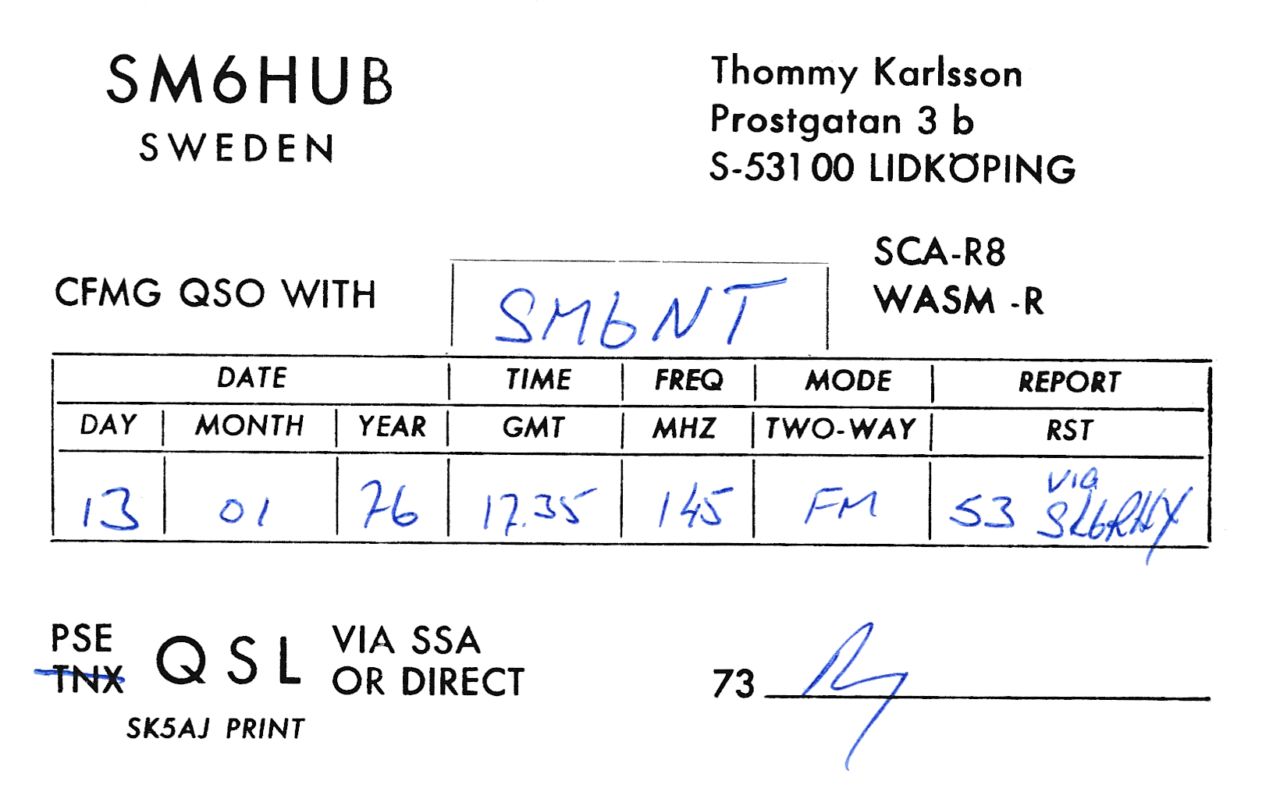 SM6HUB
SWEDEN
Thommy Karlsson
Prostgatan 3 b
S-531 00 LIDKÖPING
CFMG QSO WITH
SM6NT
SCA-R8
WASM -R
DATE TIME FREQ MODE REPORT
DAY MONTH YEAR GMT MHZ TWO-WAY RST
13 01 76 17.35 145 FM 53 via
PSE
TNX
QSL
VIA SSA
OR DIRECT
73
SK5AJ PRINT